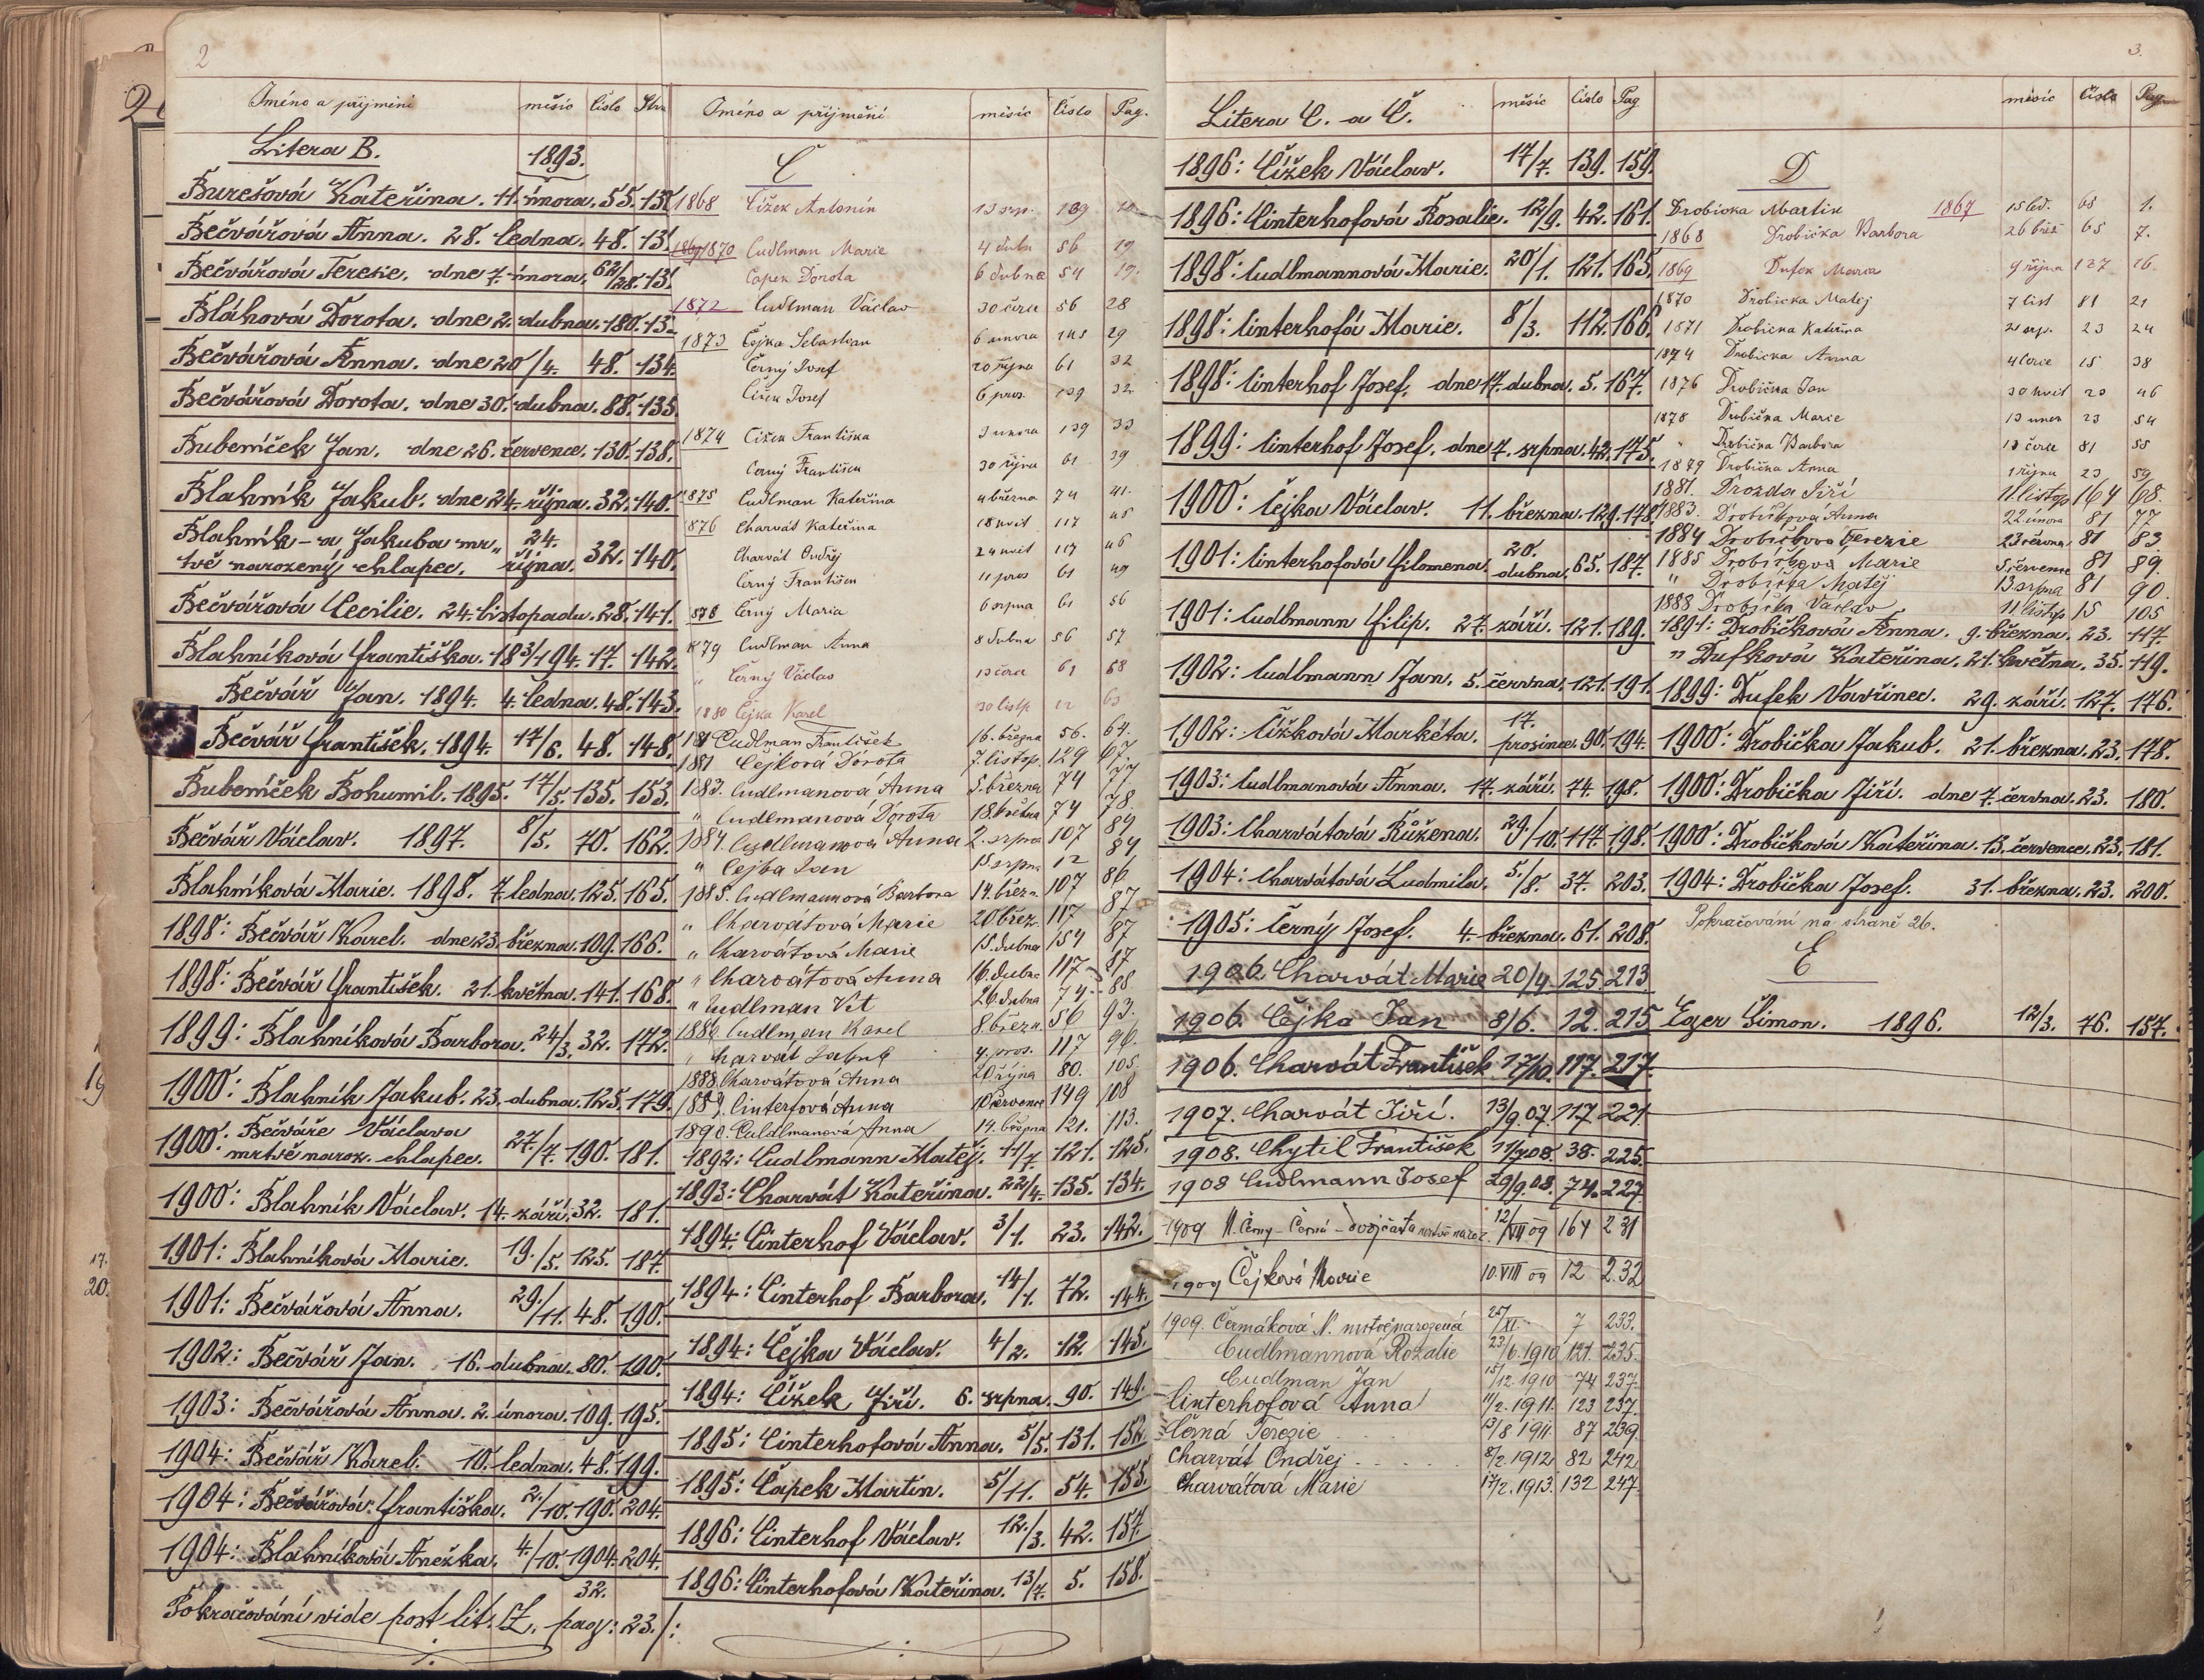 2
Jméno a příjmení měsíc Číslo Stra
Litera B. 1893.
Burešová Kateřina. 11. února. 55. 131
Bečvářová Anna. 28. ledna. 48. 13
Bečvářová Terezie, dne 7. února, 62/28. 13
Bláhová Dorota. dne 2. dubna. 180. 13
Bečvářová Anna. dne 20/4. 48. 134.
Bečvářová Dorota. dne 30. dubna. 88. 135.
Bubeníček Jan. dne 26. července. 130. 138.
Blahník Jakub. dne 24. října. 32. 140.
Blahník - a Jakuba mr„ 24.
tvě narozený chlapec. října. 32. 140.
Bečvářová Cecilie. 24. listopadu. 28. 141.
Blahníková Františka. 18 3/1 94. 17. 142.
Bečvář Jan. 1894. 4. ledna. 48. 143.
Bečvář František. 1894. 17/6. 48. 148.
Bubeníček Bohumil. 1895. 17/5. 135. 153.
Bečvář Václav. 1897. 8/5. 70. 162.
Blahníková Marie. 1898. 7. ledna. 125. 165.
1898: Bečvář Karel. dne 23. března. 109. 166.
1898: Bečvář František. 21. května. 141. 168.
1899: Blahníková Barbora. 24/3. 32. 172.
1900: Blahník Jakub. 23. dubna. 125. 179.
1900: Bečváře Václava
mrtvě naroz. chlapec. 27/7. 190. 181.
1900: Blahník Václav. 14. září. 32. 181.
1901: Blahníková Marie. 19./5. 125. 187.
1901: Bečvářová Anna. 29./11. 48. 190.
1902: Bečvář Jan. 16. dubna. 80. 190.
1903: Bečvářová Anna. 2. února. 109. 195.
1904: Bečvář Karel. 10. ledna. 48. 199.
1904: Bečvářová Františka. 2./10. 190. 204.
1904: Blahníková Anežka. 4./10. 1904. 204.
32.
Pokračování vide post lit. Z, pag: 23./:
Jméno a příjmení měsíc Číslo Pag.
C
1868 Čížek Antonín 13 srp. 139
1869/1870 Cudlman Marie 4 dubn 56 19
Čapek Dorota 6 dubna 54 19.
1872 Cudlman Václav 30 černc 56 28
1873 Čejka Sebastian 6 února 145 29
Černý Josef 20 října 61 32
Čížek Josef 6 pros. 139 32
1874 Čížek Františka 3 února 139 33
Černý František 30 října 61 39
1875 Cudlman Kateřina 4 března 74 41.
1876 Charvát Kateřina 18 květ 117 45
Charvát Ondřej 24 květ 117 46
Černý František 11 pros 61 49
878 Černý Maria 6 srpna 61 56
1879 Cudlman Anna 8 dubna 56 57
„ Černý Václav 13 černc 61 58
1880 Čejka Karel 30 listp. 12 63
181 Cudlman František 16. března 56. 64.
1881 Čejková Dorota 7. listop. 129 67.
1883. Cudlmanová Anna 5. března 74 77.
„ Cudlmanová Dorota 18. května 74 78.
1884. Cudlmanová Anna 2. srpna 107 84
„ Čejka Jan 15 srpna 12 84
1885. Cudlmannová Barbora 14. březn. 107 86
„ Charvátová Marie 20 břez. 117 87
„ Charvátová Marie 15. dubna 154 87
„ Charvátová Anna 16. dubna 117 87
„ Cudlman Vít 26. dubna 74 88
1886 Cudlman Karel 8. březn. 56 93.
„ Charvát Jakub 4. pros. 117 96.
1888. Charvátová Anna 20 října 80. 105.
1889. Cinterfová Anna 10 července 149 108
1890. Culdlmanová Anna 14. března 121. 113.
1892: Cudlmann Matěj. 11/7. 121. 125.
1893: Charvát Kateřina. 22/4. 135. 134.
1894: Cinterhof Václav. 3/1. 23. 142.
1894: Cinterhof Barbora. 14/1. 72. 144.
1894: Čejka Václav. 4/2. 12. 145.
1894: Čížek Jiří. 6. srpna. 90. 149.
1895: Cinterhofová Anna. 5/5. 131. 152.
1895: Čapek Martin. 5/11. 54. 155.
1896: Cinterhof Václav. 12./3. 42. 157.
1896: Cinterhofová Kateřina. 13/7. 5. 158.
3.
Litera C. a Č. měsíc Číslo Pag
1896: Čížek Václav. 17/7. 139. 159.
1896: Cinterhofová Rosalie. 12/9. 42. 161.
1898: Cudlmannová Marie. 20/1. 121. 165.
1898: Cinterhofá Marie. 8/3. 112. 166.
1898: Cinterhof Josef, dne 17. dubna. 5. 167.
1899: Cinterhof Josef, dne 7. srpna. 42. 175.
1900: Čejka Václav. 11. března. 129. 178.
1901: Cinterhofová Filomena. 20. dubna. 65. 187.
1901: Cudlmann Filip. 27. září. 121. 189.
1902: Cudlmann Jan. 5. června. 121. 191.
1902: Čížková Markéta. 17. prosince. 90. 194.
1903: Cudlmanová Anna. 17. září. 74. 198.
1903: Charvátová Růžena. 29./10. 117. 198.
1904: Charvátová Ludmila. 5./8. 37. 203.
1905: Černý Josef. 4. března. 61. 208.
1906. Charvát Marie 20/4 125. 213.
1906. Čejka Jan 8/6. 12. 215
1906. Charvát František 17/10. 117. 217.
1907. Charvát Jiří. 13/9.07. 117. 221.
1908. Chytil František 11/7 08. 38. 225.
1908 Cudlmann Josef 29/9.08. 74. 227.
1909 N. Černý - Černá - dvojčata mrtvě naroz. 12/VII 09 164 231
1909 Čejková Marie 10. VIII 09 12 232
1909. Čermáková N. mrtvěnarozená 25/XI. 7 233.
Cudlmannová Rozalie 23/6. 1910 121. 235.
Cudlman Jan 15/12. 1910 74 237.
Cinterhofová Anna 11/2. 1911. 123 237.
Černá Terezie 13/8 1911. 87 239.
Charvát Ondřej 8/2. 1912 82 242
Charvátová Marie 17/2. 1913. 132 247.
měsíc Číslo Pag.
D
Drobička Martin 1867 15 led. 68 1.
1868 Drobička Barbora 26 břez 65 7.
1869 Dufek Maria 9 října 127 16
1870 Drobička Matěj 7 list 81 21
1871 Drobička Kateřina 2 srp. 23 24
1874 Drobička Anna 4 černc 15 38
1876 Drobička Jan 30 květ 23 46
1878 Drobička Marie 13 únor 23 54
„ Drobička Barbora 13 černc 81 55
1879 Drobička Anna 1 října 23 59
1881. Drozda Jiří 11. listop 164 68.
1883. Drobičková Anna 22. února 81 77
1884 Drobičková Terezie 23 června 81 83
1885 Drobičková Marie 5. července 81 89.
„ Drobička Matěj 13. srpna 81 90.
1888 Drobička Václav 11 listop 15 105
1891: Drobičková Anna. 9. března. 23. 117.
„ Dufková Kateřina, 21. května. 35. 119.
1899: Dufek Vavřinec. 29. září. 127. 176.
1900: Drobička Jakub. 21. března. 23. 178.
1900: Drobička Jiří. dne 7. června. 23. 180.
1900: Drobičková Kateřina. 13. července. 23. 181.
1904: Drobička Josef. 31. března. 23. 200.
Pokračování na straně 26.
E
Eger Šimon. 1896. 12/3. 76. 157.